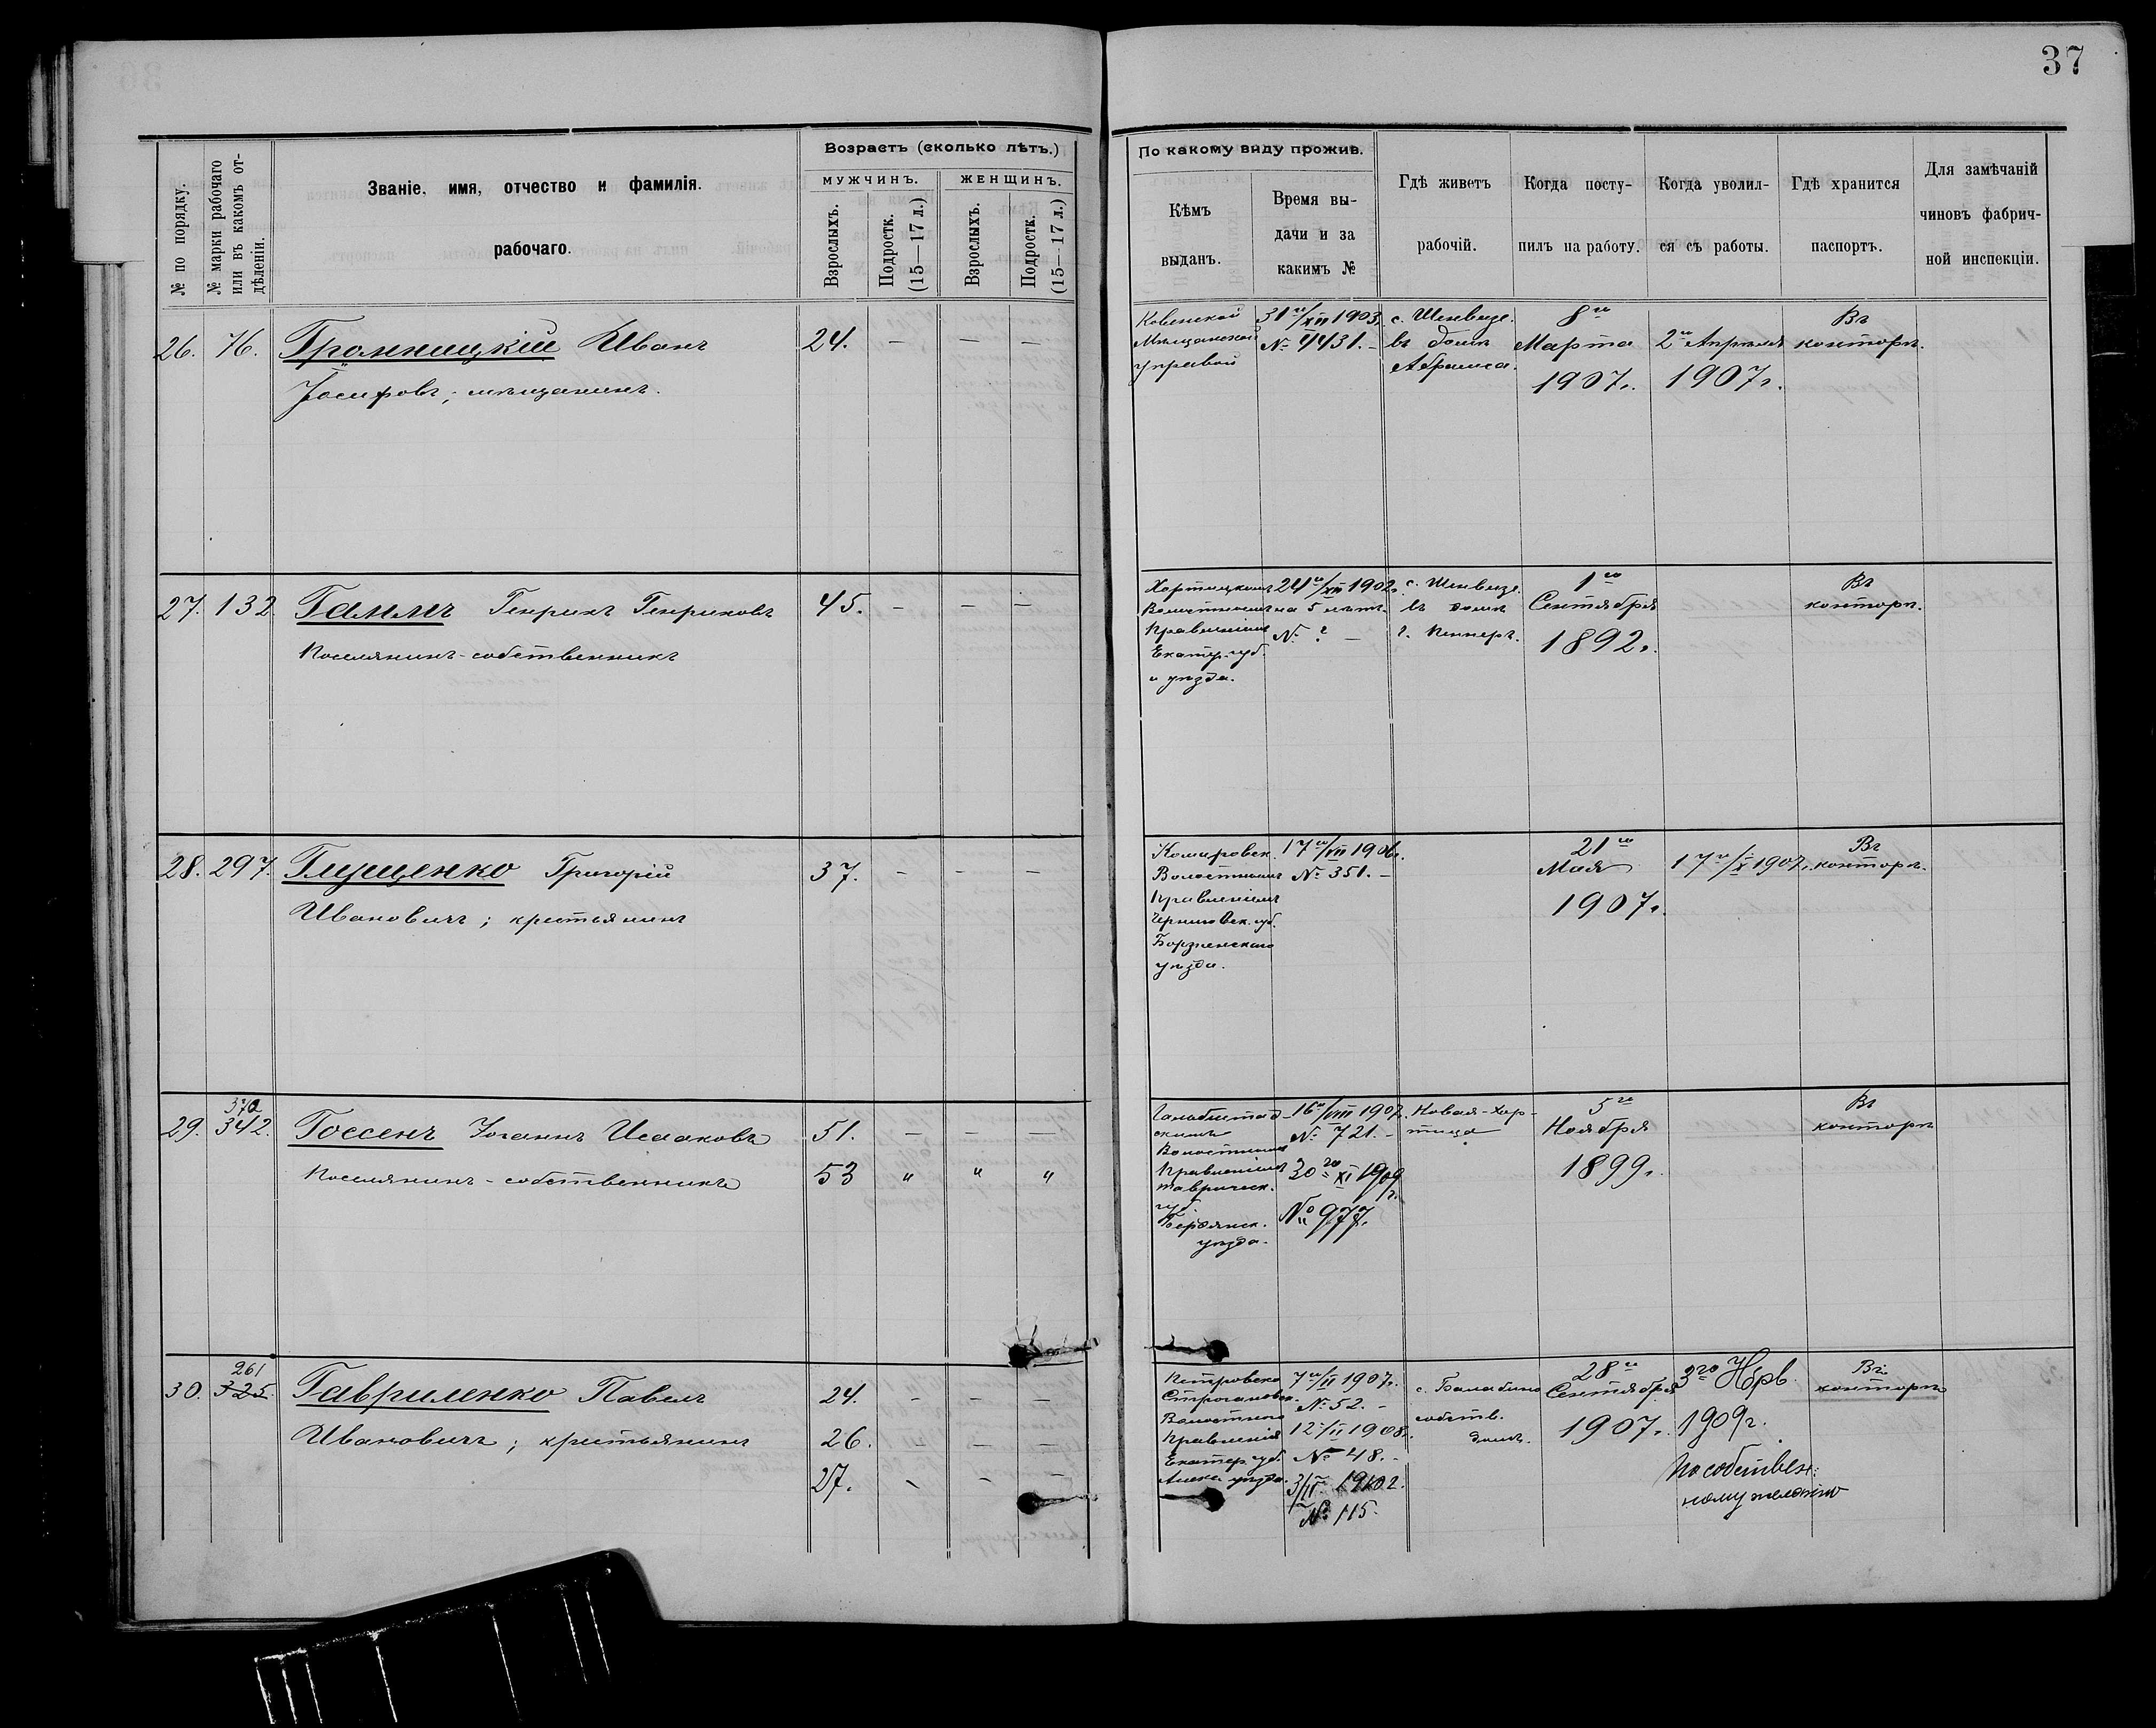 37
№ по порядку.
№ марки рабочаго или въ какомъ отдѣленіи.
Званіе, имя, отчество и фамилія.
рабочаго.
Возрастъ (сколько лѣтъ.)
МУЖЧИНЪ.
ЖЕНЩИНЪ.
Взрослыхъ.
Подростк. (15—17 л.)
Взрослыхъ.
Подростк. (15—17 л.)
По какому виду прожив.
Кѣмъ
выданъ.
Время вы-
дачи и за
какимъ №
Гдѣ живетъ
рабочій.
Когда посту-
пилъ на работу.
Когда уволил-
ся съ работы.
Гдѣ хранится
паспортъ.
Для замѣчаній
чиновъ фабрич-
ной инспекціи.
26. 76. Громницкій Иванъ 24. — — —
Іосифовъ; мѣщанинъ.
Ковенской
Мѣщанской
управой
31го/XII 1903.
№ 4431. —
с. Шенвизе.
въ домѣ
Абрамса.
8го
Марта
1907г.
2го Апрѣля
1907г.
Въ
конторѣ.
27. 132. Гаммъ Генрихъ Генриховъ 45. — — —
поселянинъ-собственникъ
Хортицкимъ
Волостнымъ
правленіемъ
Екатер. губ.
и уѣзда.
24го/XII 1902г.
на 5 лѣтъ.
№ ? —
с. Шенвизе.
въ домѣ
1го
Сентября
1892г.
Въ
конторѣ.
28. 297. Глущенко Григорій 37. — — —
Ивановичъ; крестьянинъ
Волостнымъ
правленіемъ
Черниговск. губ.
Борзненскаго
уѣзда.
17го/VII 1906г.
№ 351. —
21го
Мая
1907г.
17го/X 1907г.
Въ
конторѣ.
29. 370
342. Госсенъ Іоганнъ Исааковъ 51. — — —
поселянинъ-собственникъ 53 " " "
Гальбштад-
скимъ
Волостнымъ
правленіемъ
Таврическ.
губ.
Бердянск.
уѣзда.
16го/VIII 1907.
№ 721. —
30го XI 1909
г.
№ 977.
Новая-Хор-
тица
5го
Ноября
1899г.
Въ
конторѣ
30. 261
325. Гавриленко Павелъ 24. — — —
Ивановичъ; крестьянинъ 26. — — —
27. — — —
Петровско
Строгановск.
Волостного
правленія
Екатер. губ.
Алекс. уѣзда.
7го/II 1907г.
№ 52. —
12го/II 1908г.
№ 48. —
№ 115.
с. Балабино
собств.
домъ.
28го
Сентября
1907г.
3го Нбрѣ.
1909г.
По собствен:
ному желанію
Въ
конторѣ